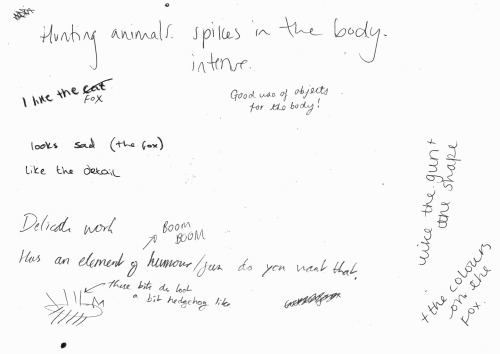 Hunting animals. spikes in the body.
intense.
I like the cat
FOX
Good use of objects
for the body!
looks sad (the fox)
Like the detail
Delicate work
BOOM
BOOM
Has an element of humour/fun do you want that.
these bits do look
a bit hedgehog like
I like the gun +
the shape
+ the colours
on the
Fox.